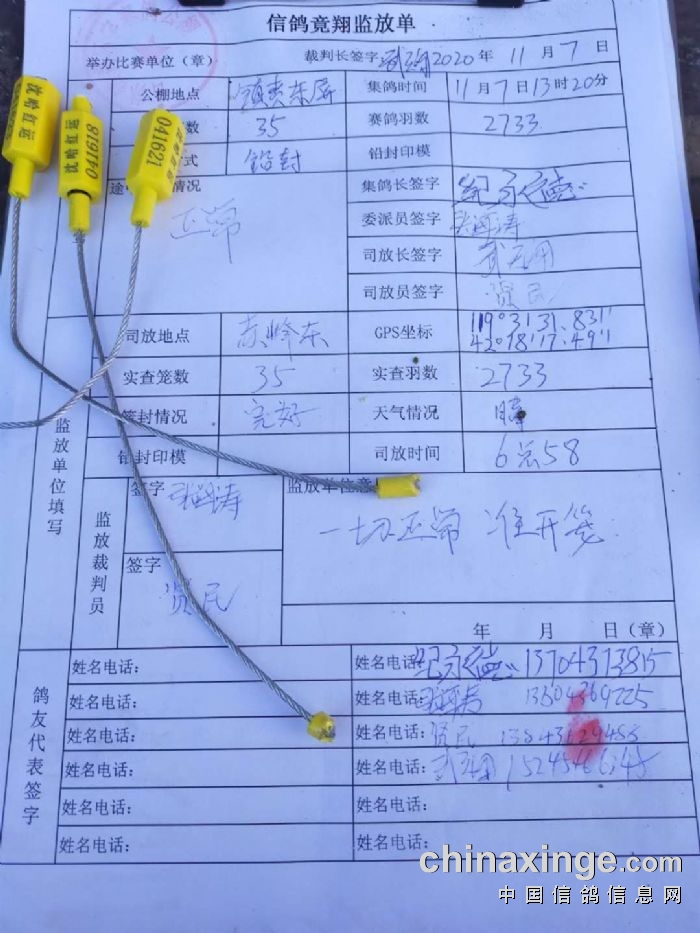 信鸽竟翔监放单
举办比赛单位（章） 裁判长签字 2020年 11月 7日
公棚地点 镇赉东屏 集鸽时间 11月7日13时20分
数 35 赛鸽羽数 2733
式 铅封 铅封印模
途 情况 正常 集鸽长签字
委派员签字
司放长签字
司放员签字 贤民
司放地点 赤峰东 GPS坐标 119°3'31.831"
42°18'17.491"
实查笼数 35 实查羽数 2733
封情况 完好 天气情况 晴
铅封印模 司放时间 6点58
监放单位填写
监放裁判员
签字 监放单位意
一切正常 准开笼
签字 贤民
年 月 日（章）
鸽友代表签字
姓名电话： 姓名电话 13704373815
姓名电话： 姓名电话：
姓名电话： 姓名电话： 贤民
姓名电话： 姓名电话：
姓名电话： 姓名电话：
姓名电话： 姓名电话：
沈哈红运
沈哈红运
041618
041621
chinaxinge.com
中国信鸽信息网